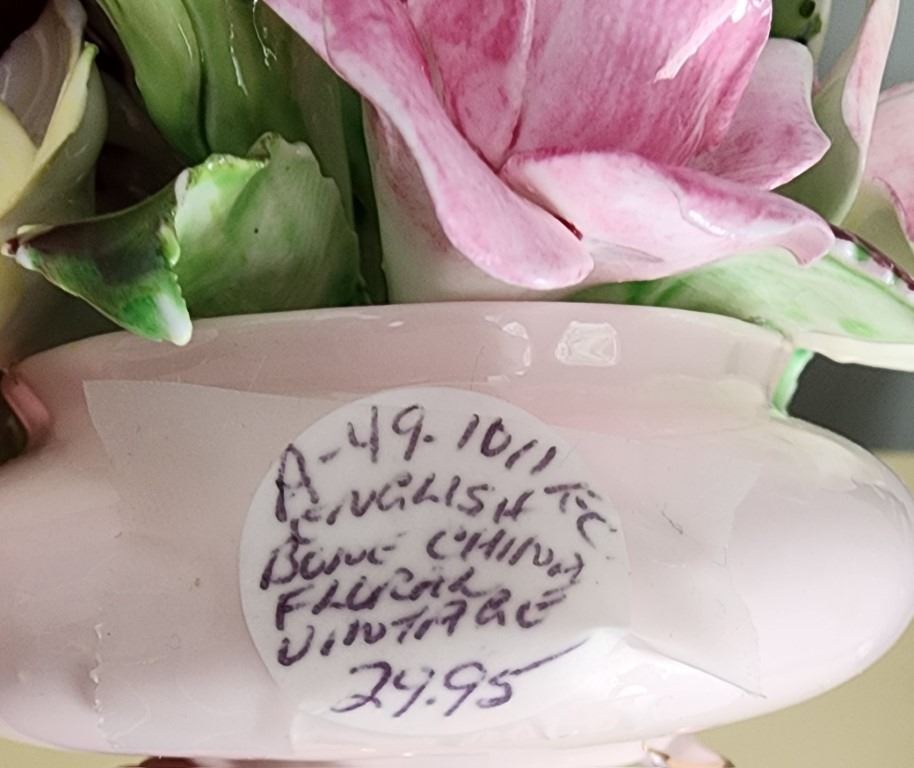 A-49.1011
ENGLISH T.C.
BONE CHINA
FLORAL
VINTAGE
29.95